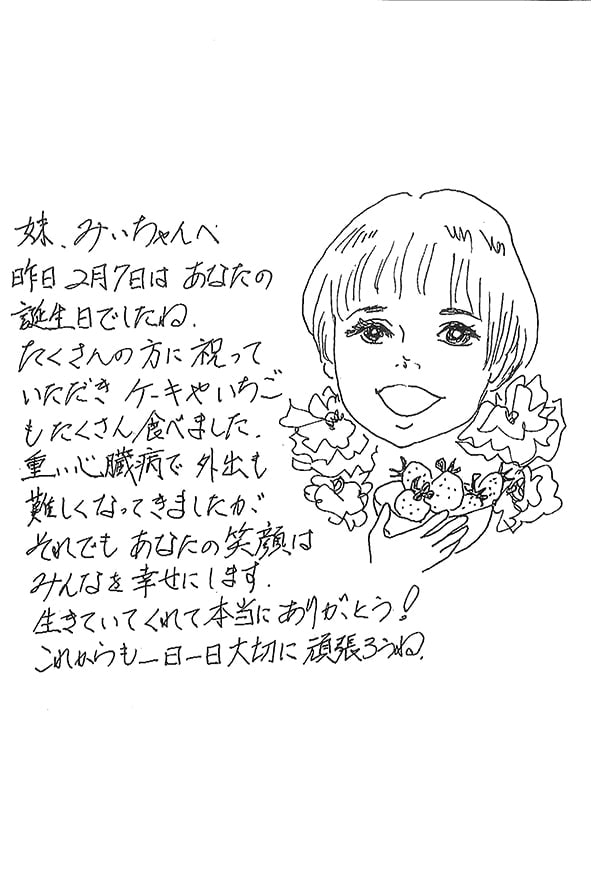 妹、みぃちゃんへ
昨日2月7日は あなたの
誕生日でしたね.
たくさんの方に祝って
いただき ケーキやいちご
もたくさん食べました.
重い心臓病で 外出も
難しくなってきましたが、
それでも あなたの笑顔は
みんなを幸せにします.
生きていてくれて本当にありがとう!
これからも一日一日大切に頑張ろうね.